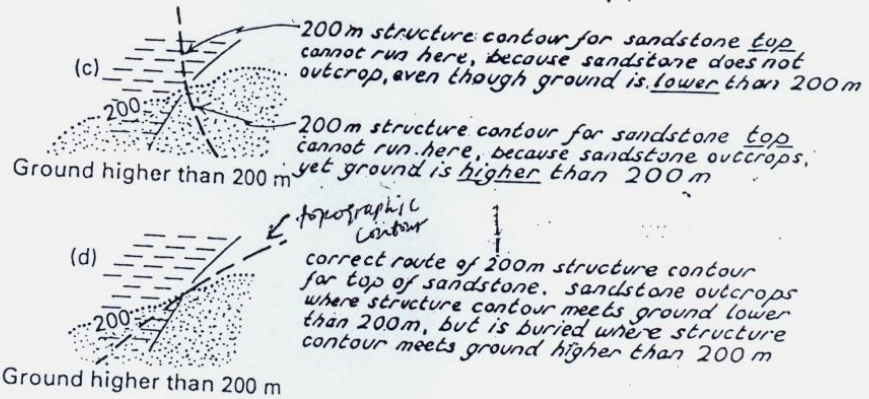 200m structure contour for sandstone top
cannot run here, because sandstone does not
outcrop, even though ground is lower than 200 m
(c)
200
200m structure contour for sandstone top
cannot run here, because sandstone outcrops,
yet ground is higher than 200 m
Ground higher than 200 m
topographic
contour
(d)
correct route of 200m structure contour
for top of sandstone. sandstone outcrops
where structure contour meets ground lower
than 200m, but is buried where structure
contour meets ground higher than 200 m
200
Ground higher than 200 m